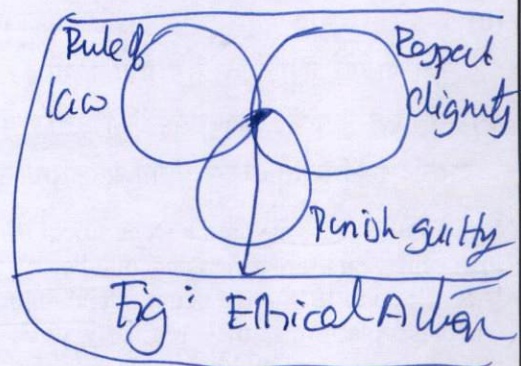 Rule of
law
Respect
dignity
Punish guilty
Fig: Ethical Action